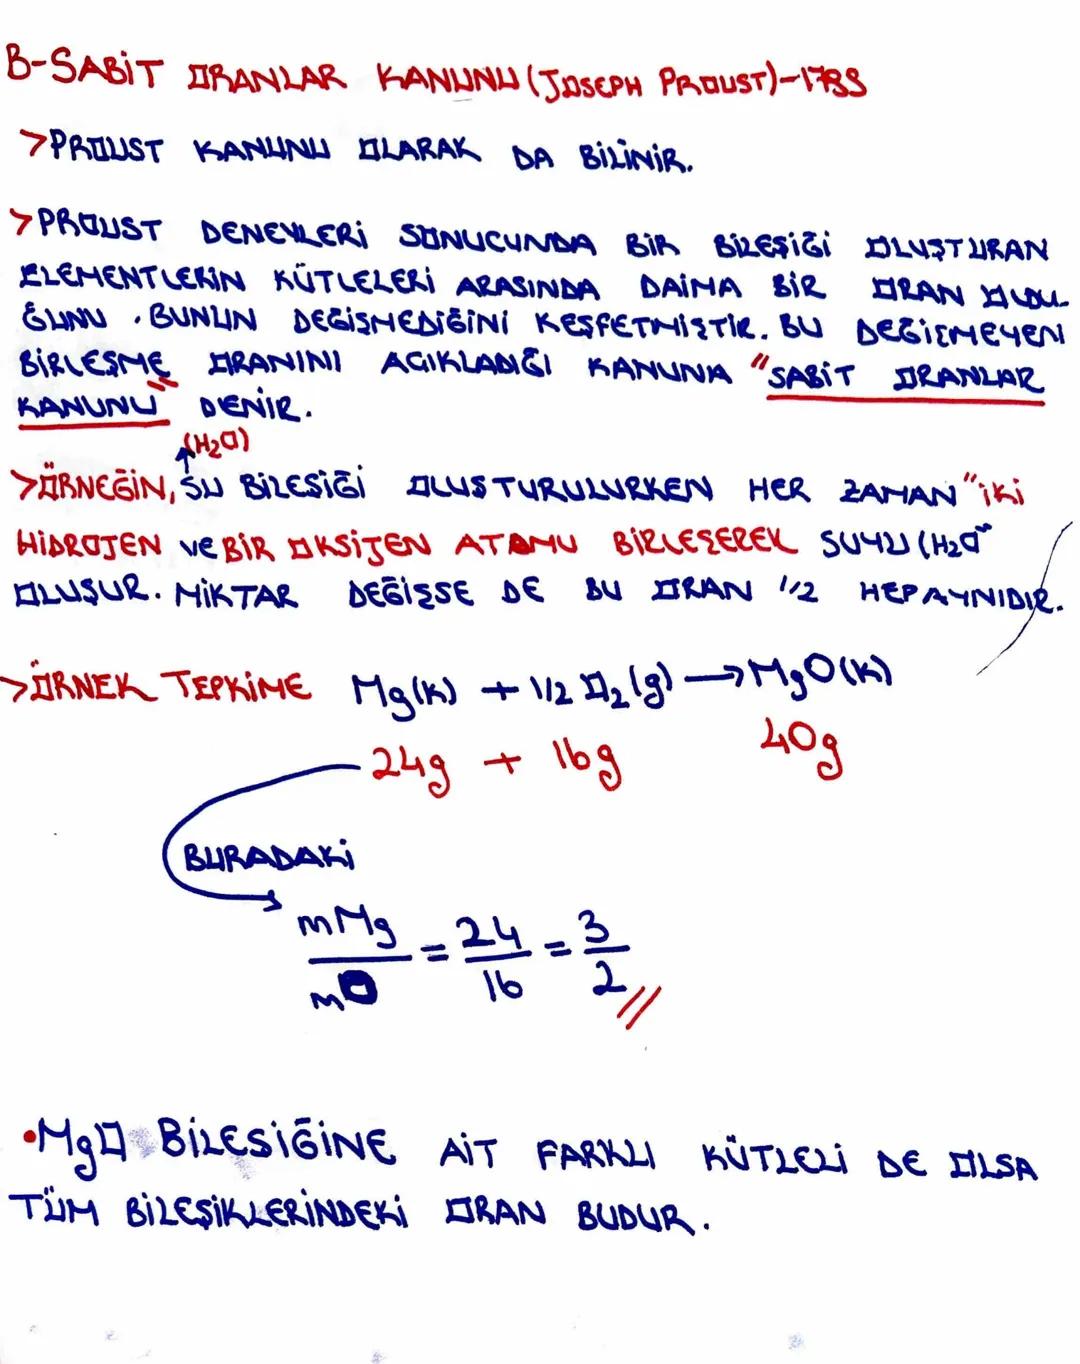 B-SABİT ORANLAR KANUNU (JOSEPH PROUST)-1799
>PROUST KANUNU OLARAK DA BİLİNİR.
>PROUST DENEYLERİ SONUCUNDA BİR BİLEŞİĞİ OLUŞTURAN
ELEMENTLERİN KÜTLELERİ ARASINDA DAİMA BİR ORAN OLDU-
ĞUNU . BUNUN DEĞİŞMEDİĞİNİ KEŞFETMİŞTİR. BU DEĞİŞMEYEN
BİRLEŞME ORANINI AÇIKLADIĞI KANUNA "SABİT ORANLAR
KANUNU" DENİR.
(H2O)
>ÖRNEĞİN, SU BİLEŞİĞİ OLUŞTURULURKEN HER ZAMAN "İKİ
HİDROJEN VE BİR OKSİJEN ATOMU BİRLEŞEREK SUYU (H2O"
OLUŞUR. MİKTAR DEĞİŞSE DE BU ORAN 1/2 HEP AYNIDIR.
>ÖRNEK TEPKİME Mg(k) + 1/2 O2(g) → MgO(k)
24g + 16g 40g
BURADAKİ
mMg/mO = 24/16 = 3/2 //
•MgO BİLEŞİĞİNE AİT FARKLI KÜTLELİ DE OLSA
TÜM BİLEŞİKLERİNDEKİ ORAN BUDUR.